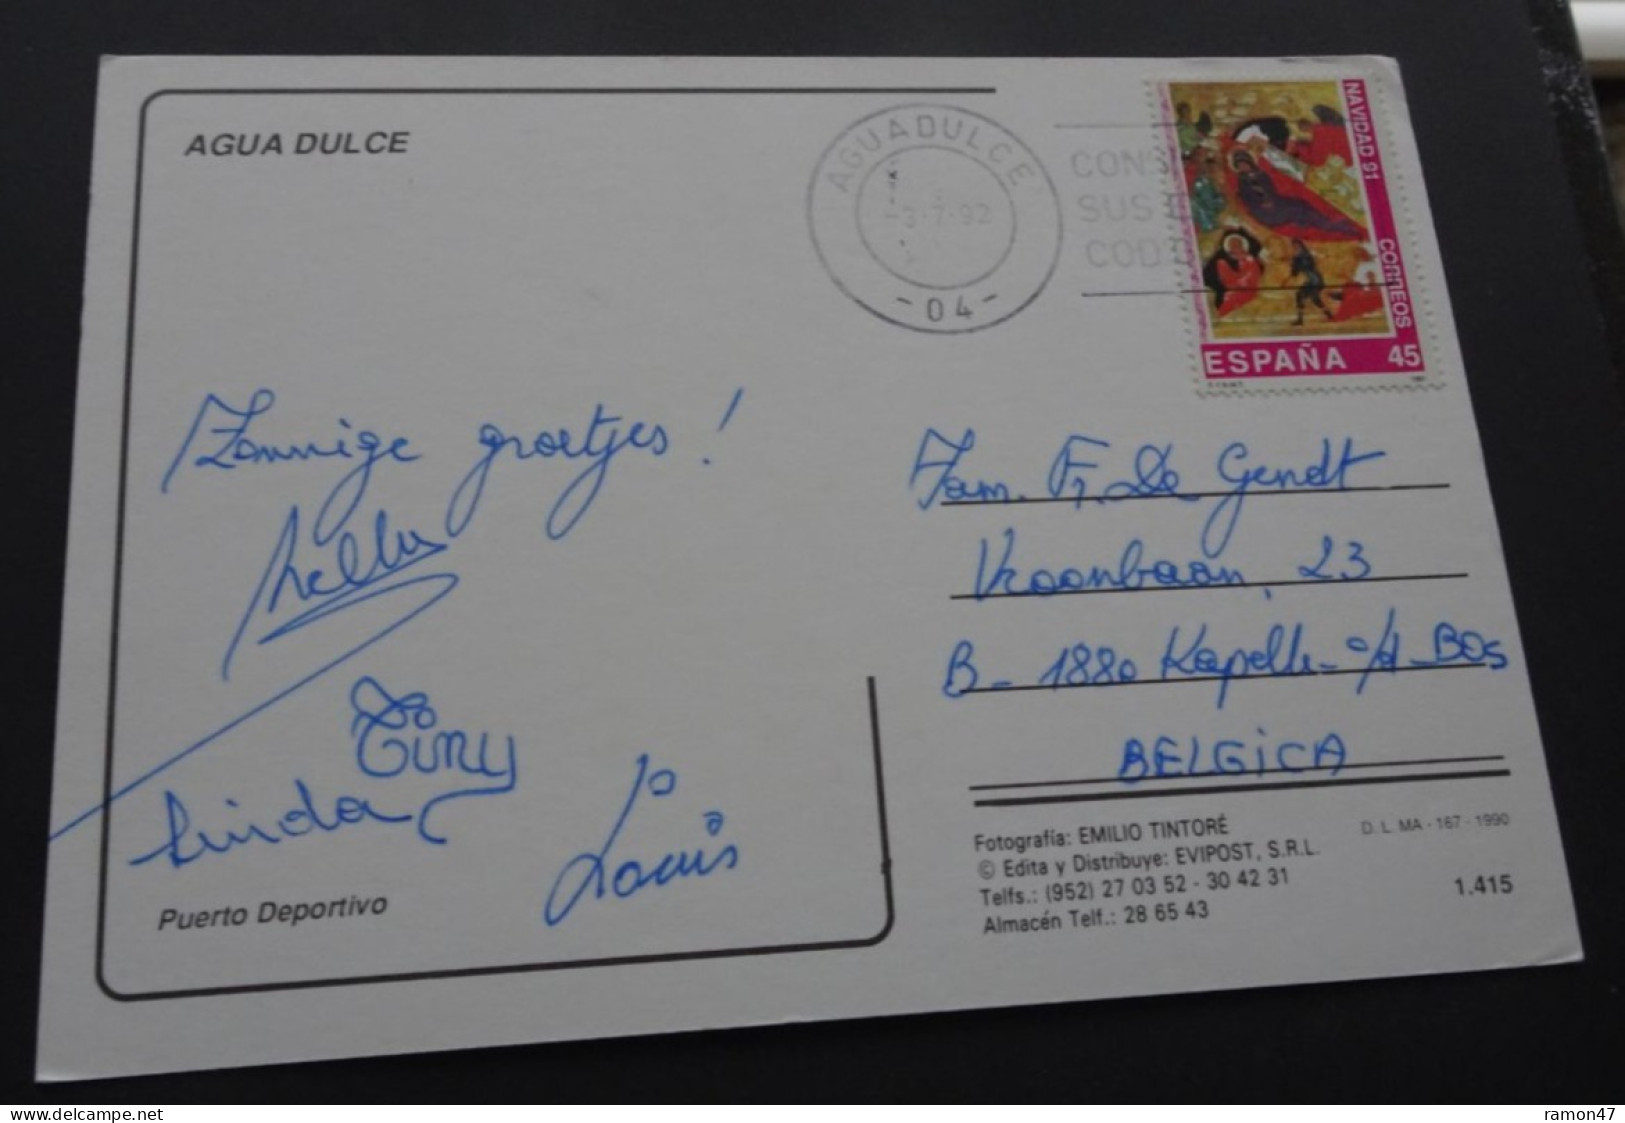 AGUA DULCE
AGUADULCE
-3·7·92
-04-
SUS
COD
NAVIDAD 91
CORREOS
ESPAÑA 45
Zonnige groetjes!
Tiny
Linda
Louis
Puerto Deportivo
Fam. Fr. De Gendt
Kroonbaan, 23
B-1880 Kapelle-o/d-Bos
BELGiCA
Fotografía: EMILIO TINTORÉ
D. L. MA - 167 - 1990
© Edita y Distribuye: EVIPOST, S.R.L.
Telfs.: (952) 27 03 52 - 30 42 31
Almacén Telf.: 28 65 43
1.415
ramon47